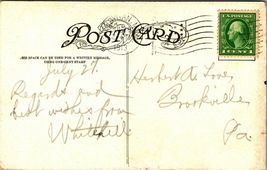 POST CARD
THIS SPACE CAN BE USED FOR A WRITTEN MESSAGE,
July 27.
Regards and
best wishes from
Whitehill
Herbert
Brookville
Pa.
U.S. POSTAGE
1 CENT 1